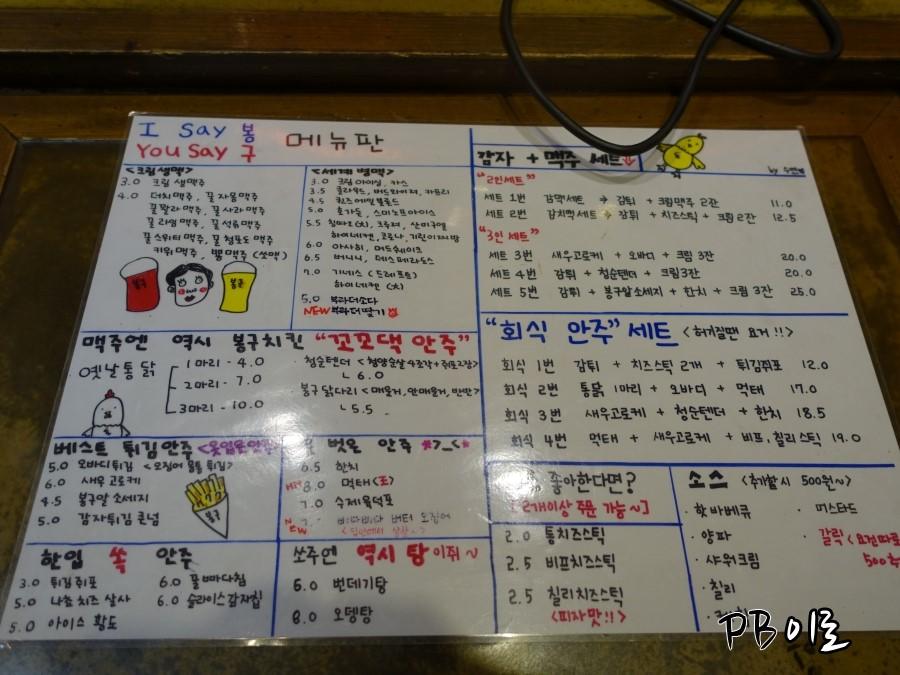 I Say 봉
You Say 구
메뉴판
<크림생맥>
3.0 크림 생맥주
4.0 더치맥주, 꿀자몽맥주
꿀팔라 맥주, 꿀사과 맥주
꿀라임 맥주, 꿀석류 맥주
꿀스위티 맥주, 꿀청포도 맥주
키위 맥주, 뿅맥주 (쏘맥)
봉구
봉군
<세계병맥>
3.0 크림 아이싱, 카스
3.5 클라우드, 버드와이저, 카프리
4.5 퀸즈에일블론드
5.0 호가든, 스미노프아이스
5.5 칭따오(소), 크루저, 산미구엘
하이네켄, 코로나, 기린이찌방
6.0 아사히, 머드쉐이크
6.5 버니니, 데스페라도스
7.0 기네스 (드래프트)
하이네켄 (大)
5.0 부라더소다
NEW 부라더딸기
감자 + 맥주 세트
by
"2인세트"
세트 1번 감맥세트 → 감튀 + 크림맥주 2잔 11.0
세트 2번 감치맥세트 → 감튀 + 치즈스틱 + 크림 2잔 12.5
"3인 세트"
세트 3번 새우고로케 + 오바디 + 크림 3잔 20.0
세트 4번 감튀 + 청순텐더 + 크림3잔 20.0
세트 5번 감튀 + 봉구알소세지 + 한치 + 크림 3잔 25.0
맥주엔 역시 봉구치킨 "꼬꼬댁 안주"
옛날통닭
1마리 - 4.0
2마리 - 7.0
3마리 - 10.0
청순텐더 <청양순살 4조각 + 쥐포2장>
ㄴ 6.0
봉구 닭다리 <매울거, 안매울거, 반반>
ㄴ 5.5
"회식 안주" 세트 <허거질땐 요거!!>
회식 1번 감튀 + 치즈스틱 2개 + 튀김쥐포 12.0
회식 2번 통닭 1마리 + 오바디 + 먹태 17.0
회식 3번 새우고로케 + 청순텐더 + 한치 18.5
회식 4번 먹태 + 새우고로케 + 비프, 칠리스틱 19.0
베스트 튀김안주 <옷입은안주>
5.0 오바디튀김 <오징어 몸통 튀김>
6.0 새우 고로케
4.5 봉구알 소세지
5.0 감자튀김 콘넬
봉구
벗은 안주 *>_<*
6.5 한치
8.0 먹태 <또>
7.0 수제육덕포
NEW 버터 오징어
좋아한다면?
[2개이상 주문 가능~]
2.0 통치즈스틱
2.5 비프치즈스틱
2.5 칠리치즈스틱
<피자맛!!>
소스 <추가할시 500원~>
· 핫바베큐
· 미스타드
· 양파
· 갈릭 <요건따로
500
· 사워크림
· 칠리
한입 쏙 안주
3.0 튀김쥐포
5.0 나쵸치즈살사
5.0 아이스 황도
6.0 꿀빠다칩
6.0 슬라이스감자칩
쏘주엔 역시 탕 이쥐~
6.0 번데기탕
8.0 오뎅탕
PB이로